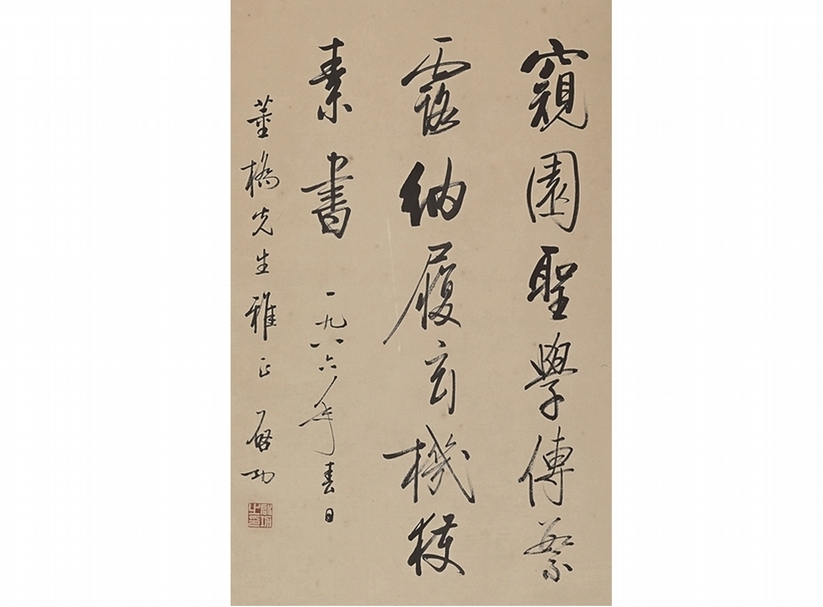 窺園聖學傳繁
露納履玄機獲
素書 一九八六年春日
董橋先生雅正 啓功